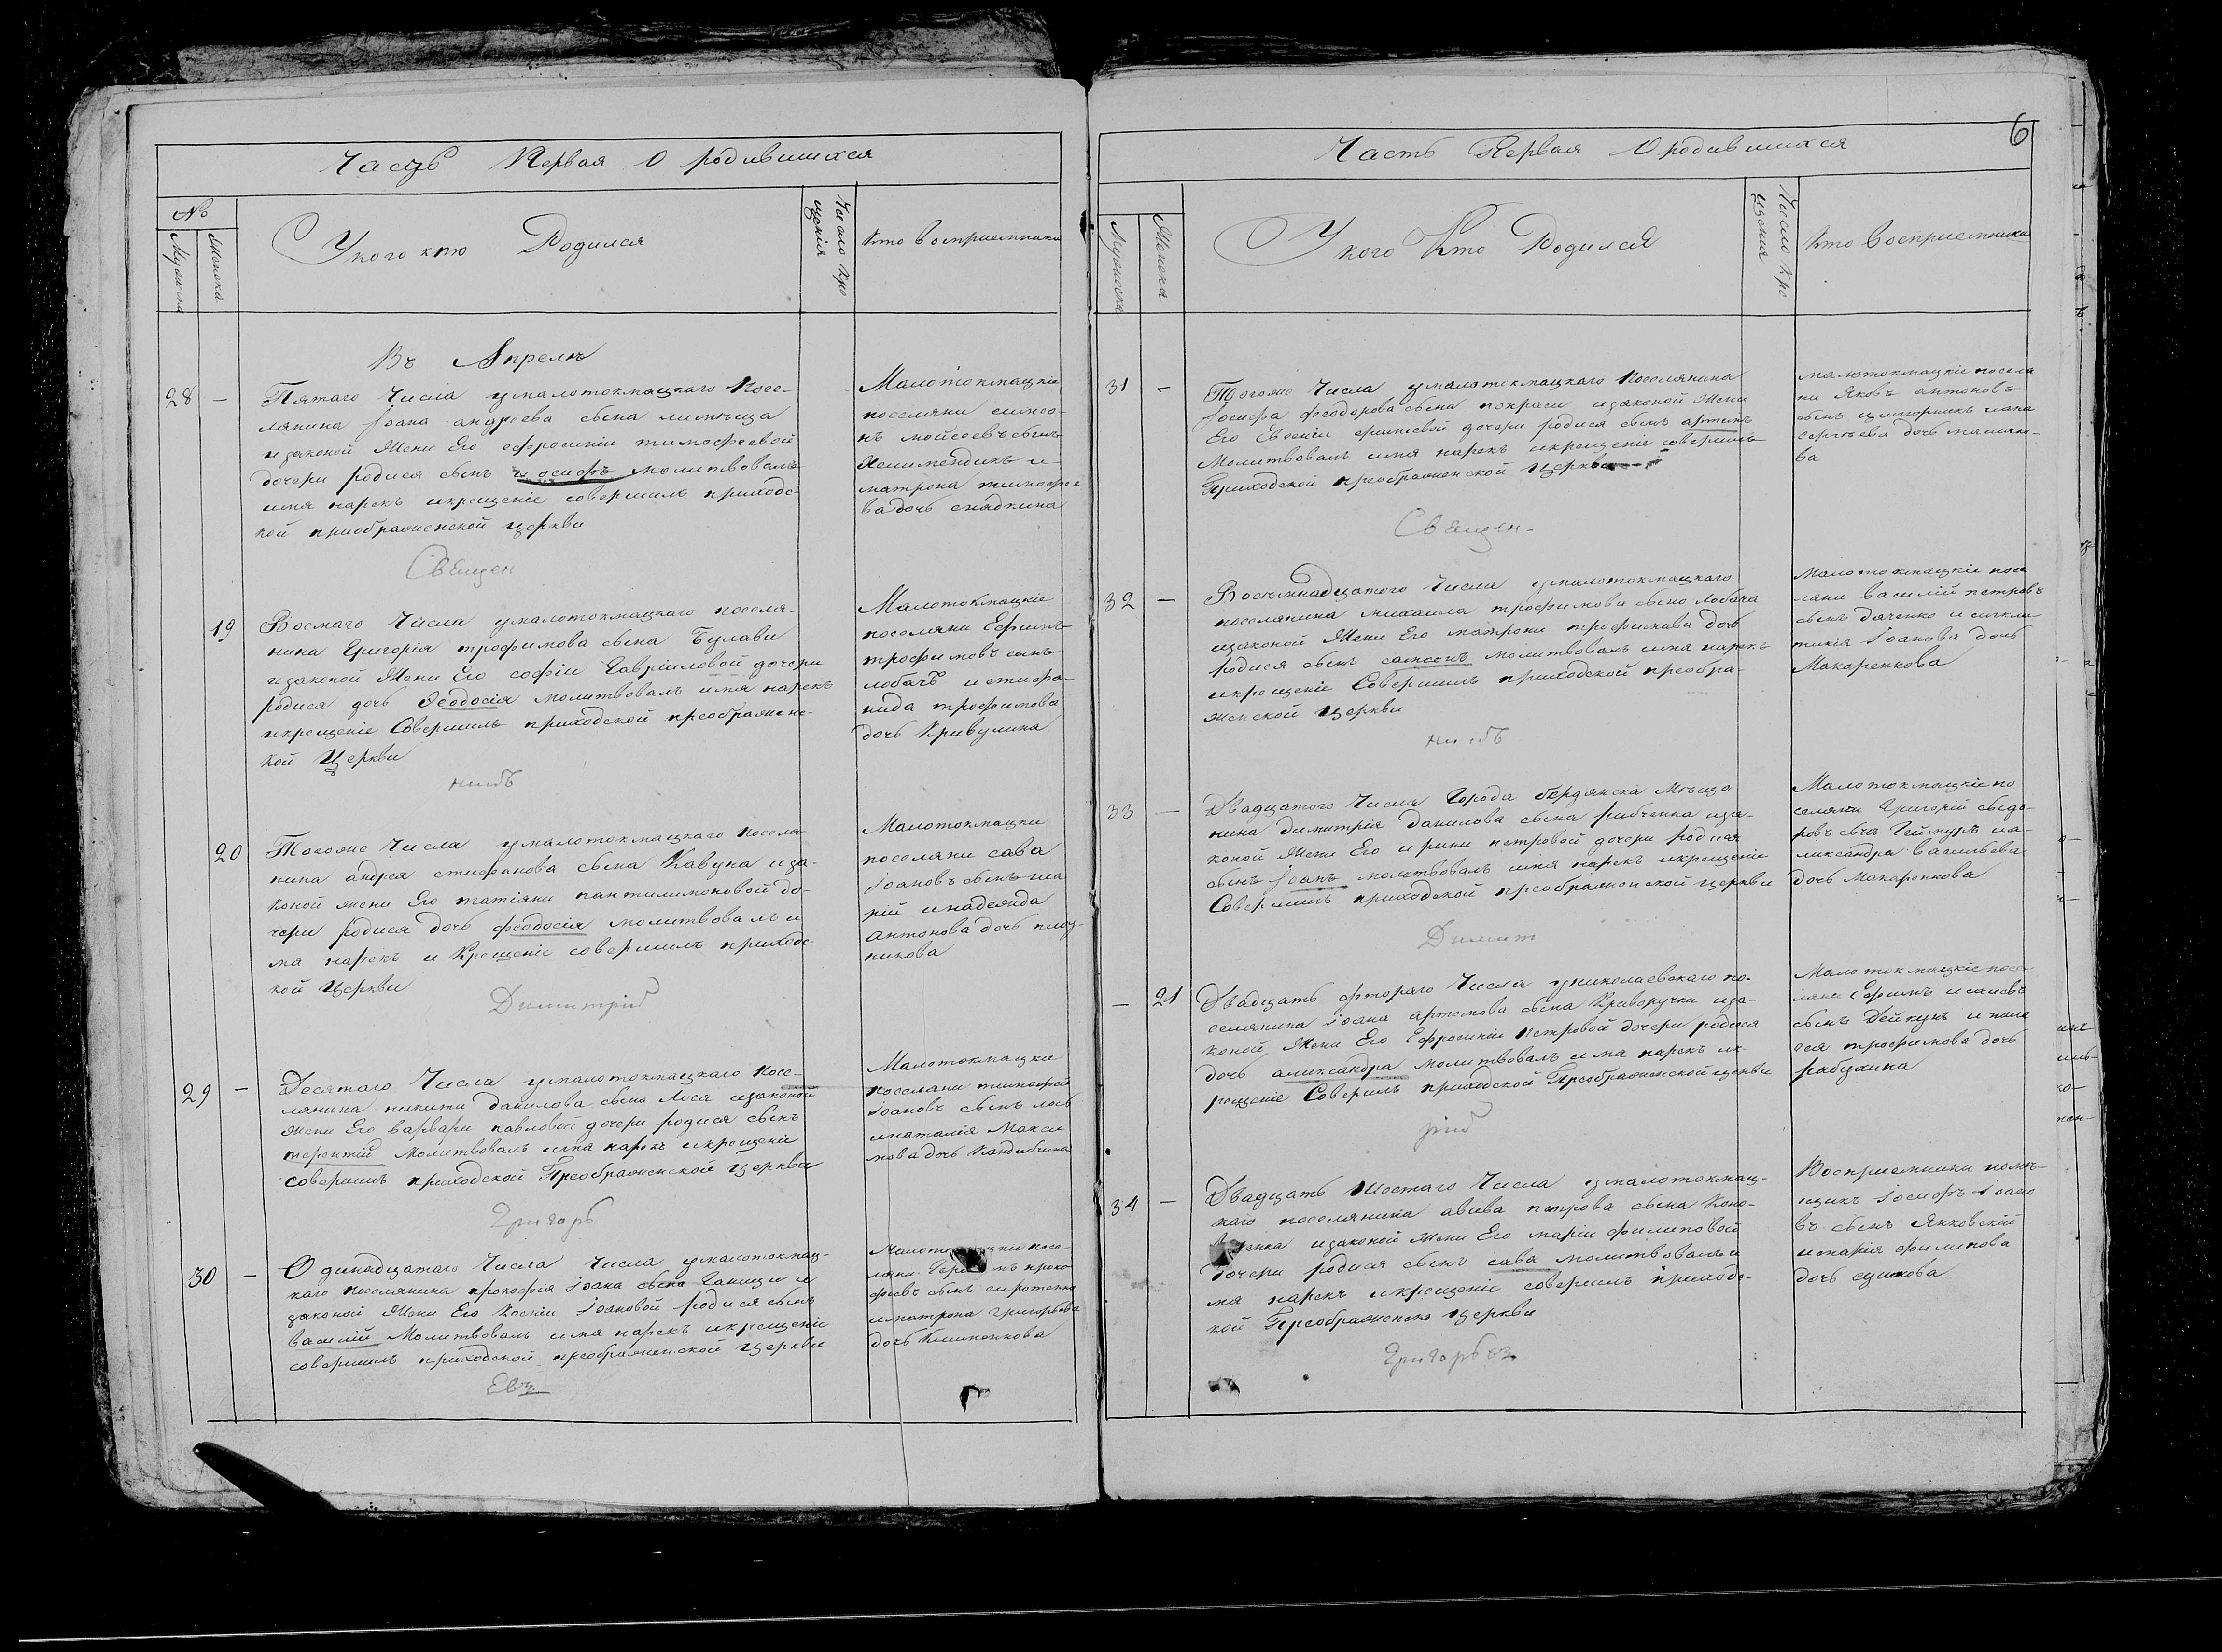 Часть Первая О родившихся
№
Мужеска
Женска
У кого кто Родился
Число кре
щенія
Кто восприемники
Въ Апреле
28 —
Пятаго Числа умалотокмацкаго посе-
лянина Іоана андреева сына
изаконой Жени Его ефросиніи тимофеевой
дочери родися сынъ иосифъ молитвовалъ
имя нарекъ икрещеніе совершилъ приходс-
кой приображенской церкви
Священ
Малотокмацкіе
поселяни симео-
нъ мойсеевъ сынъ
и
матрона тимофее
ва дочь
19
Восмаго Числа умалотокмацкаго поселя-
нина Григорія трофимова сына Булави
изаконой Жени Его софіи Гавріиловой дочери
родися дочь Феодосія молитвовалъ имя нарекъ
икрещеніе Совершилъ приходской преображенс-
кой Церкви
никъ
Малотокмацкіе
поселяни Ефимъ
трофимовъ сынъ
лобачъ истефа-
нида трофимова
дочь Кривулина
20
Тогоже Числа умалотокмацкаго поселя-
нина андрея стифанова сына Кавуна иза-
коной жени Его татіяни пантилимоновой до-
чери родися дочь феодосія молитвовалъ и
мя нарекъ и Крещеніе совершилъ приходс-
кой Церкви
Димитрій
Малотокмацки
поселяни сава
Іоановъ сынъ ша
рій инадежда
Антонова дочь плоу-
никова
29 —
Десятаго Числа умалотокмацкаго посе-
лянина никити данилова сына Лося изаконой
Жени Его варвари павловой дочери родися сынъ
терентій Молитвовалъ имя нарекъ икрещеніе
совершилъ приходской Преображенской церкви
Григорь
Малотокмацки
поселяни тимофей
Іоановъ сынъ лось
инаталія Макси
мова дочь Кандибина
30 —
Одинадцатаго Числа Числа умалотокмац-
каго поселянина прокофія Іоана сына Ганщи и
законой Жени Его Ксеніи Іоановой родися сынъ
василій Молитвовалъ имя нарекъ икрещеніе
совершилъ приходской преображенской церкви
Евз
посе-
ляни проко-
фіевъ сынъ сиротенко
иматрона Григорьева
дочь Клименкова
6
Часть Первая О родившихся
Мужеска
Женска
У кого Кто Родился
Число кре
щения
Кто восприемники
31 —
Тогоже Числа умалотокмацкаго поселянина
Іосифа феодорова сына покраси изаконой Жени
Его Евгеніи дочери родися сынъ артемъ
Молитвовалъ имя нарекъ икрещеніе совершилъ
Приходской преображенской Церкви
Священ-
малотокмацкіе посела
ни Яковъ антоновъ
сынъ
сергіева дочь
ва
32 —
Восемнадцатого Числа умалотокмацкаго
поселянина михаила трофимова сына лобача
изаконой Жени Его матрони трофимива дочь
родися сынъ самсонъ молитвовалъ имя нарекъ
икрещеніе Совершилъ приходской преобра-
женской Церкви
никъ
Малотокмацкіе посе
ляни василій петровъ
сынъ дяченко исикли-
тикія Іоанова дочь
Макаренкова
33 —
Двадцатого Числа Города бердянска Меща
нина димитрія данилова сына рибченка иза-
коной Жени Его ирини петровой дочери родися
сынъ Іоанъ молитвовалъ имя нарекъ икрещеніе
Совершилъ приходской преображенской церкви
Димит
Малотокмацкіе по
селяни Григорій сыдо-
ровъ сынъ Геймуръ иа-
лександра васильева
дочь Макаренкова
— 21
Двадцать фтораго Числа униколаевскаго по-
селянина іоана артемова сына Криворучки иза-
коной Жени Его Ефросиніи петровой дочери родися
дочь александра молитвовалъ имя нарекъ ик-
рещеніе Совершилъ приходской Преображенской церкви
рій
Малотокмацкіе посе-
ляни Ефимъ исаиевъ
сынъ Дейкунъ и пела
гея трофимова дочь
рабухина
34 —
Двадцать Шостаго Числа умалотокмац-
каго поселянина авива петрова сына Коно-
ненка изаконой Жени Его маріи филиповой
дочери родися сынъ сава молитвовалъ и
мя нарекъ икрещеніе совершилъ приходс-
кой Преображенско церкви
Григорьвз
Восприемники поме-
щикъ Іосифъ Іоано
въ сынъ Янковскій
имарія филипова
дочь